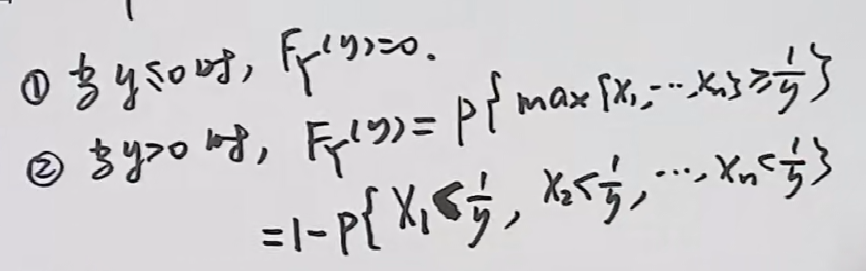 ① 当y≤0时, F_Y(y)=0.
② 当y>0时, F_Y(y)=P{max{X₁,…,Xₙ}≥1/y}
=1-P{X₁<1/y, X₂<1/y,…,Xₙ<1/y}